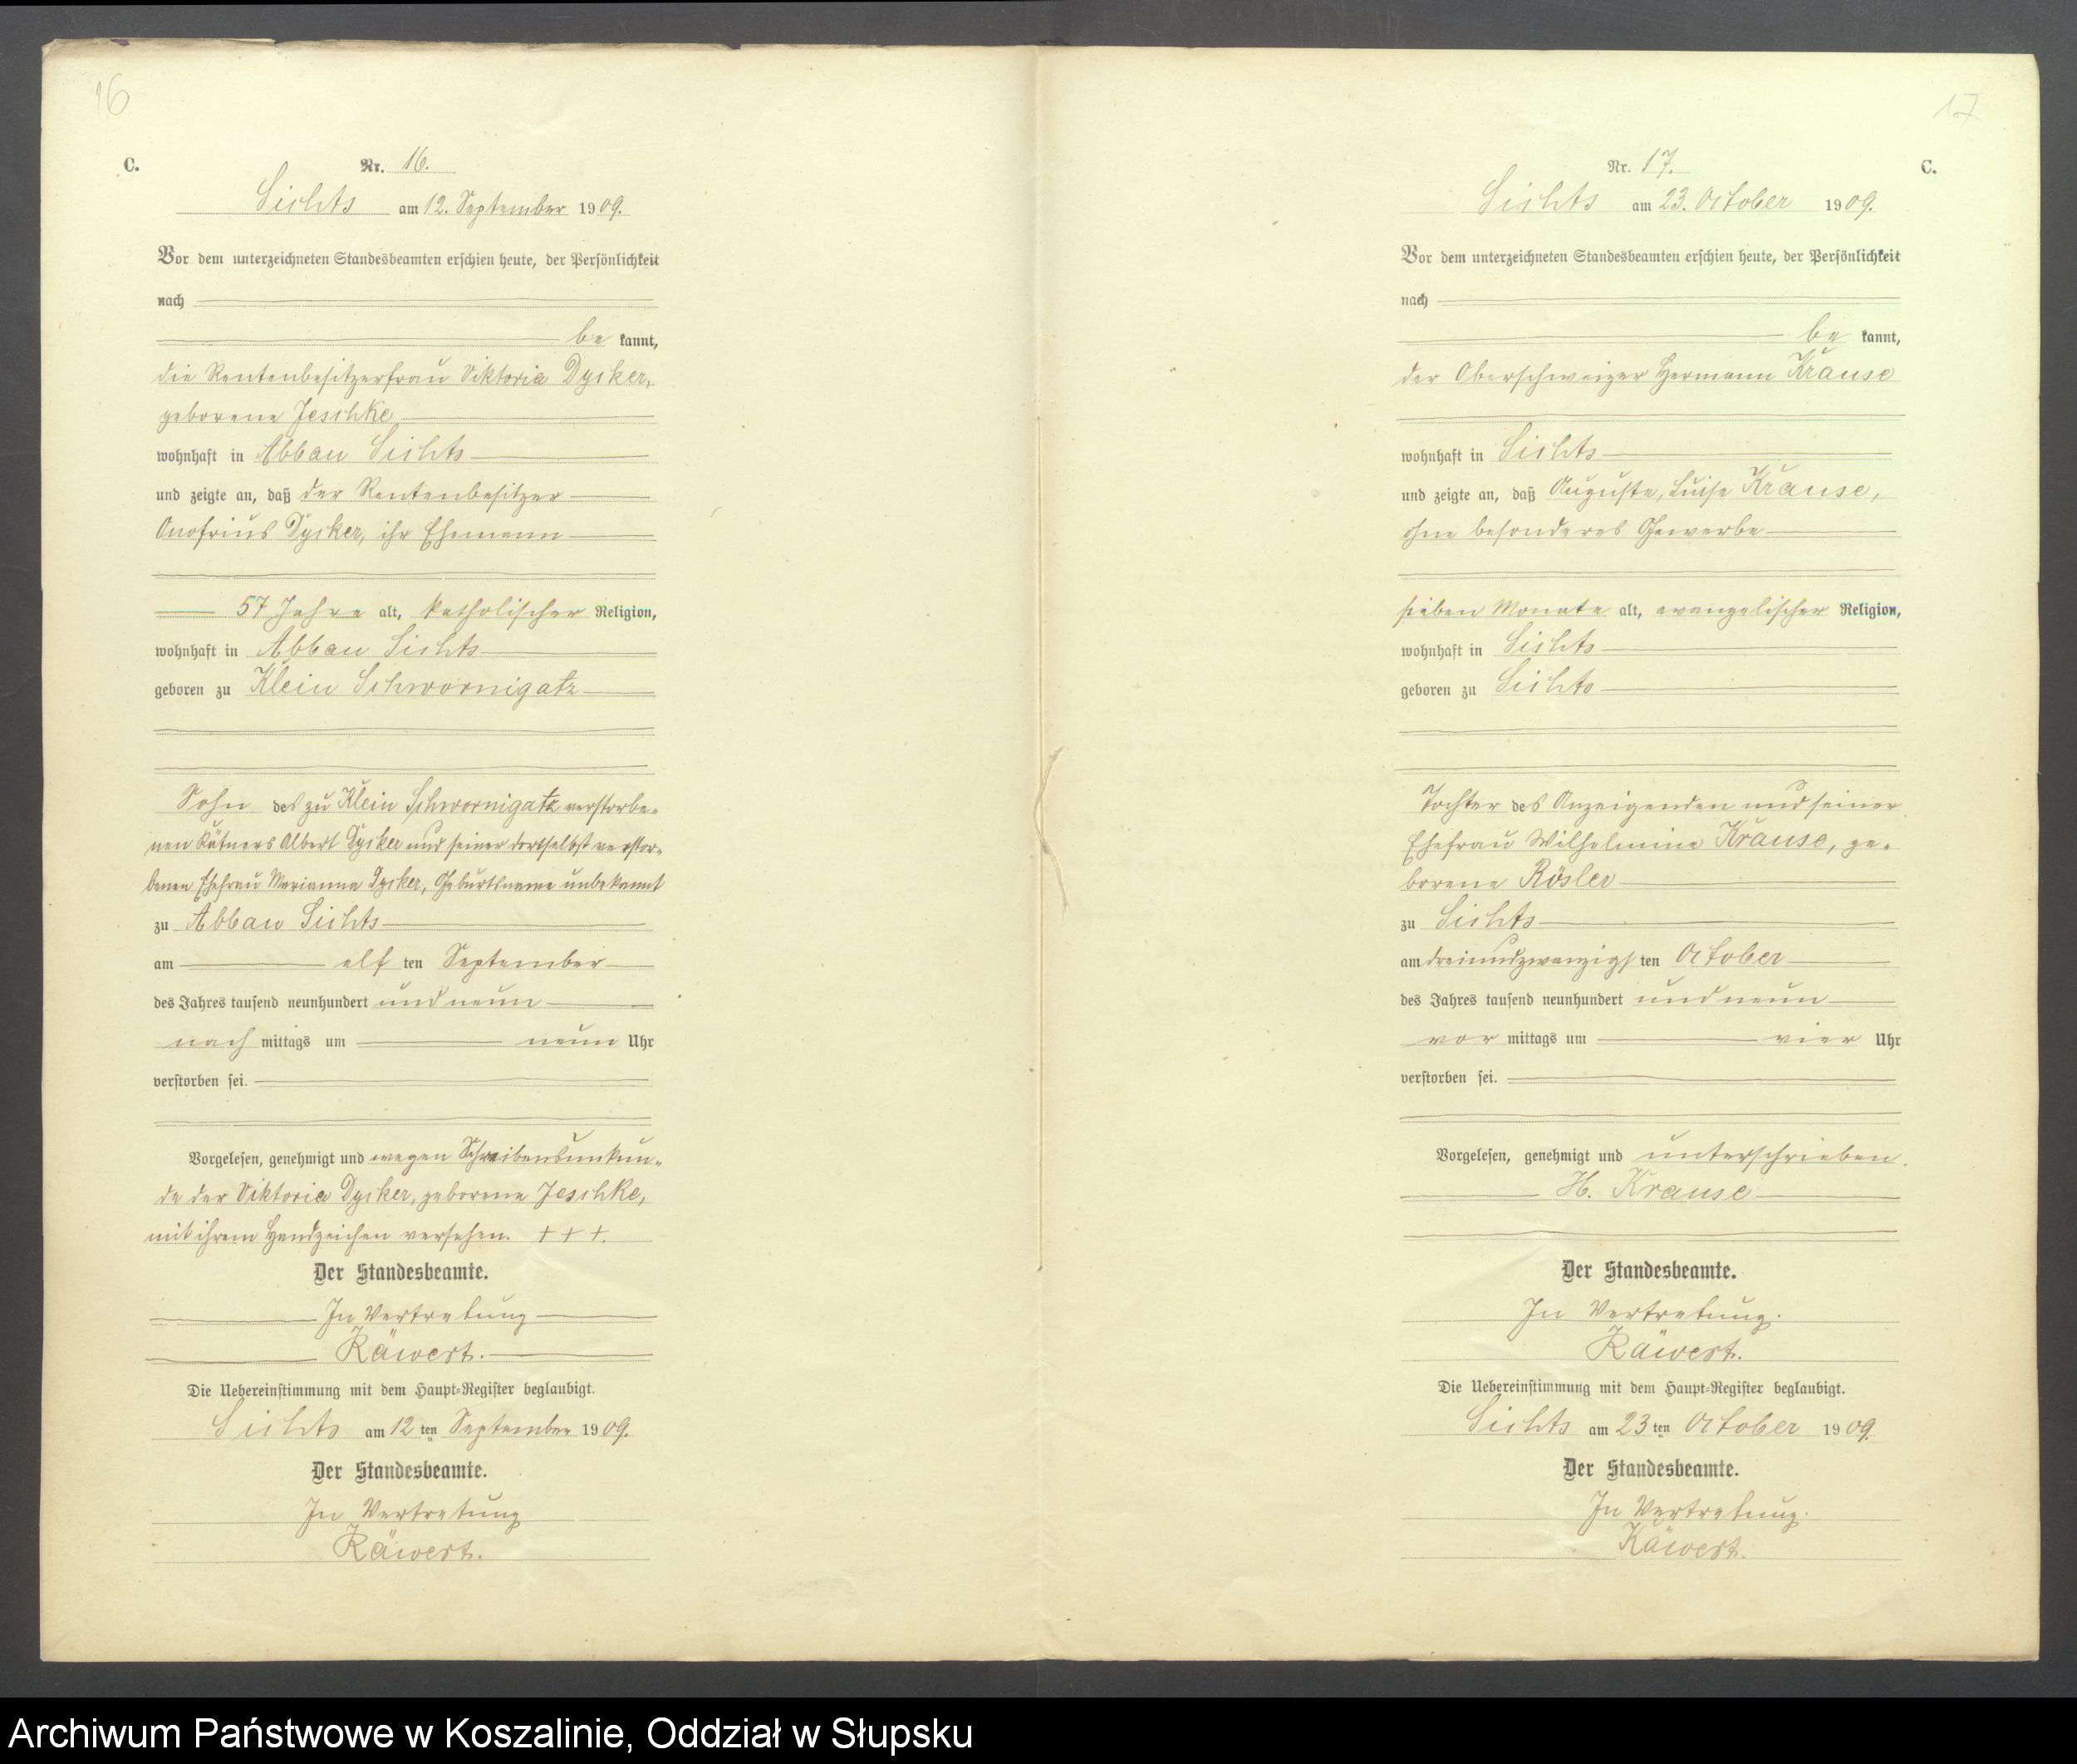 16
C.
Nr. 16.
Sichts am 12. September 1909.
Vor dem unterzeichneten Standesbeamten erschien heute, der Persönlichkeit
nach
be kannt,
die Rentenbesitzerfrau Viktoria Dycker,
geborene Jeschke
wohnhaft in Abbau Sichts
und zeigte an, daß der Rentenbesitzer
Onofrius Dycker, ihr Ehemann
57 Jahre alt, katholischer Religion,
wohnhaft in Abbau Sichts
geboren zu Klein Schwornigatz
Sohn des zu Klein Schwornigatz verstorbe-
nen Kätners Albert Dycker und seiner dortselbst verstor-
benen Ehefrau Marianna Dycker, Geburtsname unbekannt
zu Abbau Sichts
am elf ten September
des Jahres tausend neunhundert und neun
nach mittags um neun Uhr
verstorben sei.
Vorgelesen, genehmigt und wegen Schreibensunkun-
de der Viktoria Dycker, geborene Jeschke,
mit ihrem Handzeichen versehen. + + +.
Der Standesbeamte.
In Vertretung
Räwert.
Die Uebereinstimmung mit dem Haupt-Register beglaubigt.
Sichts am 12 ten September 1909.
Der Standesbeamte.
In Vertretung
Räwert.
17
Nr. 17.
C.
Sichts am 23. October 1909.
Vor dem unterzeichneten Standesbeamten erschien heute, der Persönlichkeit
nach
be kannt,
der Oberschweizer Hermann Krause
wohnhaft in Sichts
und zeigte an, daß Auguste, Luise Krause,
ohne besonderes Gewerbe
sieben Monate alt, evangelischer Religion,
wohnhaft in Sichts
geboren zu Sichts
Tochter des Anzeigenden und seiner
Ehefrau Wilhelmine Krause, ge-
borene Rösler
zu Sichts
am dreiundzwanzigs ten October
des Jahres tausend neunhundert und neun
vor mittags um vier Uhr
verstorben sei.
Vorgelesen, genehmigt und unterschrieben.
H. Krause
Der Standesbeamte.
In Vertretung.
Räwert.
Die Uebereinstimmung mit dem Haupt-Register beglaubigt.
Sichts am 23 ten October 1909.
Der Standesbeamte.
In Vertretung.
Räwert.
Archiwum Państwowe w Koszalinie, Oddział w Słupsku